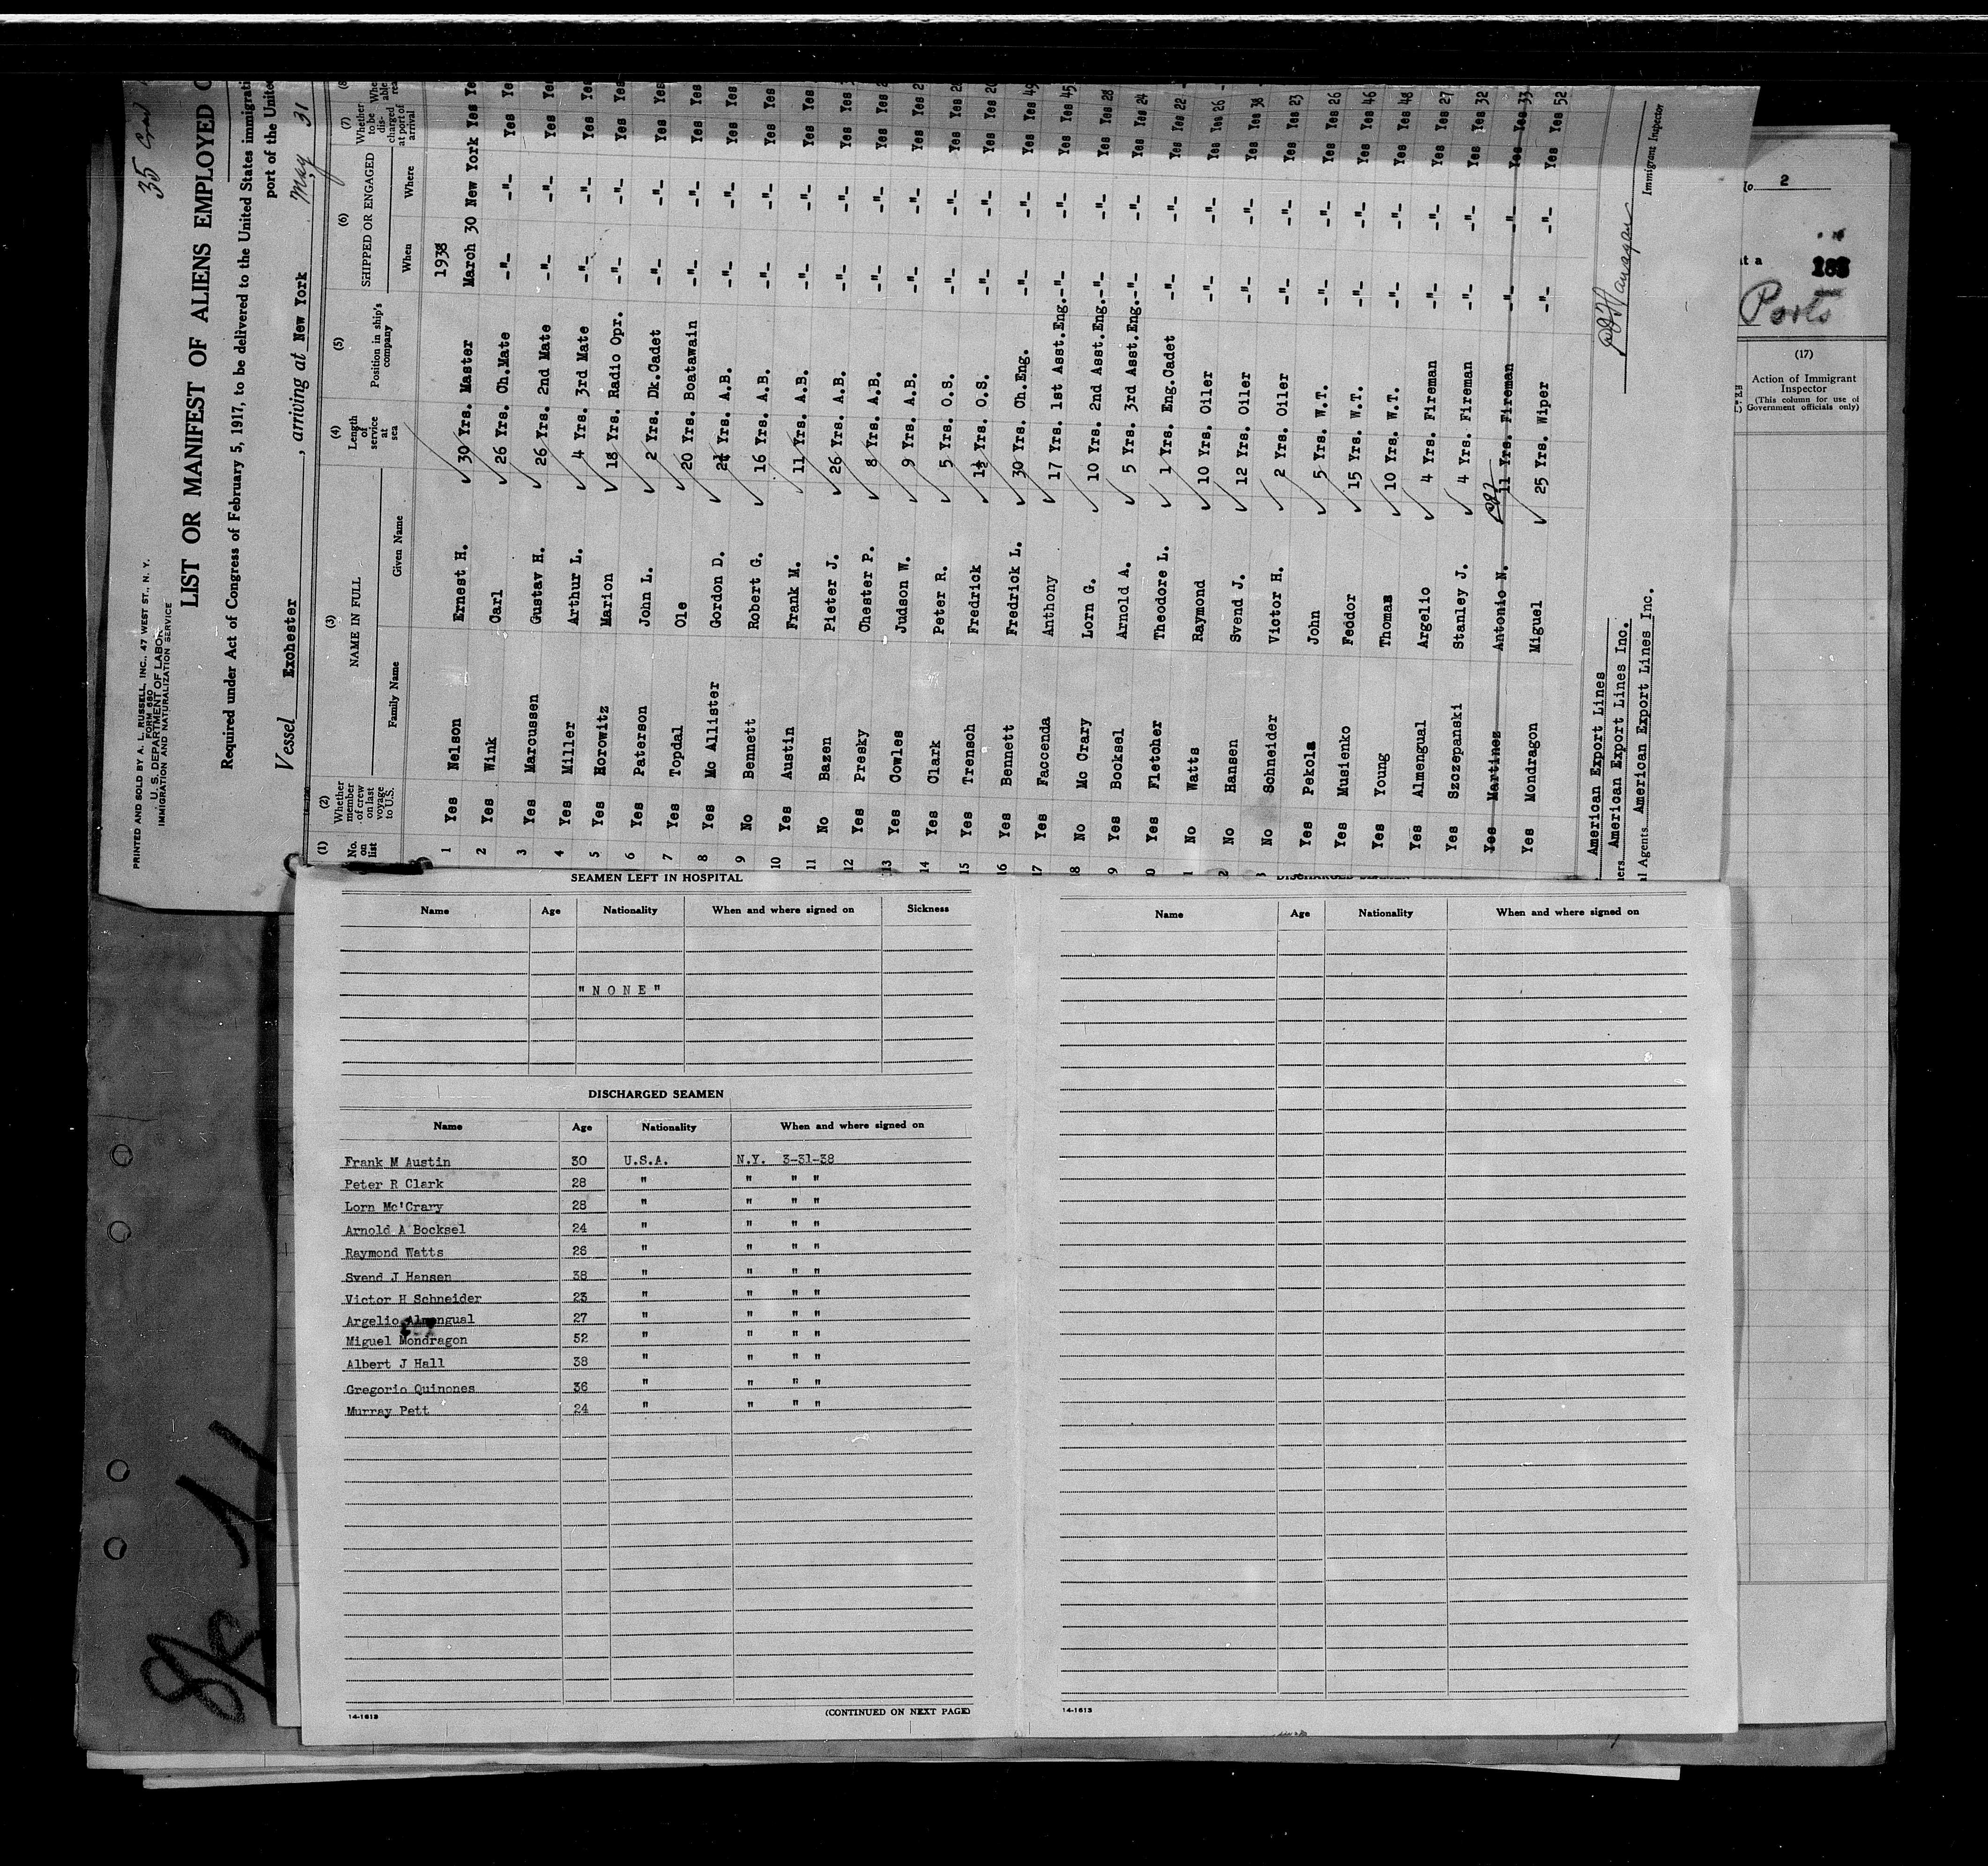 35
PRINTED AND SOLD BY A. L. RUSSELL, INC., 47 WEST ST., N. Y.
FORM 680
U. S. DEPARTMENT OF LABOR
IMMIGRATION AND NATURALIZATION SERVICE
LIST OR MANIFEST OF ALIENS EMPLOYED
Required under Act of Congress of February 5, 1917, to be delivered to the United States immigrati
port of the Unite
Vessel Exchester , arriving at New York May 31
(1) (2) (3) (4) (5) (6) (7) (8
No. on list
Whether member of crew on last voyage to U.S.
NAME IN FULL
Family Name Given Name
Length of service at sea
Position in ship's company
SHIPPED OR ENGAGED
When Where
Whether to be discharged at port of arrival
Whe able rea
1938
1 Yes Nelson Ernest H. 30 Yrs. Master March 30 New York Yes Ye
2 Yes Wink Carl 26 Yrs. Ch.Mate -"- -"- Yes Ye
3 Yes Marcussen Gustav H. 26 Yrs. 2nd Mate -"- -"- Yes Ye
4 Yes Miller Arthur L. 4 Yrs. 3rd Mate -"- -"- Yes Yes
5 Yes Horowitz Marion 18 Yrs. Radio Opr. -"- -"- Yes Yes
6 Yes Paterson John L. 2 Yrs. Dk.Cadet -"- -"- Yes Yes
7 Yes Topdal Ole 20 Yrs. Boatswain -"- -"- Yes Yes
8 Yes Mc Allister Gordon D. Yrs. A.B. -"- -"- Yes Yes
9 No Bennett Robert G. 16 Yrs. A.B. -"- -"- Yes Yes
10 Yes Austin Frank M. 11 Yrs. A.B. -"- -"- Yes Yes
11 No Bazen Pieter J. 26 Yrs. A.B. -"- -"- Yes Yes
12 Yes Presky Chester P. 8 Yrs. A.B. -"- -"- Yes Yes 2
13 Yes Cowles Judson W. 9 Yrs. A.B. -"- -"- Yes Yes 2
14 Yes Clark Peter R. 5 Yrs. O.S. -"- -"- Yes Yes 2
15 Yes Trensch Fredrick 1½ Yrs. O.S. -"- -"- Yes Yes 20
16 Yes Bennett Fredrick L. 30 Yrs. Ch.Eng. -"- -"- Yes Yes 49
17 Yes Faccenda Anthony 17 Yrs. 1st Asst.Eng. -"- -"- Yes Yes 45
18 No Mc Crary Lorn G. 10 Yrs. 2nd Asst.Eng. -"- -"- Yes Yes 28
9 Yes Bocksel Arnold A. 5 Yrs. 3rd Asst.Eng. -"- -"- Yes Yes 24
0 Yes Fletcher Theodore L. 1 Yrs. Eng.Cadet -"- -"- Yes Yes 22
1 No Watts Raymond 10 Yrs. Oiler -"- -"- Yes Yes 26
2 No Hansen Svend J. 12 Yrs. Oiler -"- -"- Yes Yes 38
3 No Schneider Victor H. 2 Yrs. Oiler -"- -"- Yes Yes 23
Yes Pekola John 5 Yrs. W.T. -"- -"- Yes Yes 26
Yes Musienko Feddor 15 Yrs. W.T. -"- -"- Yes Yes 46
Yes Young Thomas 10 Yrs. W.T. -"- -"- Yes Yes 48
Yes Almengual Argelio 4 Yrs. Fireman -"- -"- Yes Yes 27
Yes Szczepanski Stanley J. 4 Yrs. Fireman -"- -"- Yes Yes 32
Yes Martinez Antonio N. 11 Yrs. Fireman -"- -"- Yes Yes 33
Yes Mondragon Miguel 25 Yrs. Wiper -"- -"- Yes Yes 52
American Export Lines
ners American Export Lines Inc.
l Agents American Export Lines Inc.
Immigrant Inspector
2
at a
Ports
(17)
Action of Immigrant Inspector
(This column for use of Government officials only)
SEAMEN LEFT IN HOSPITAL
Name Age Nationality When and where signed on Sickness
"NONE"
DISCHARGED SEAMEN
Name Age Nationality When and where signed on
Frank M Austin 30 U.S.A. N.Y. 3-31-38
Peter R Clark 28 " " " "
Lorn Mc'Crary 28 " " " "
Arnold A Bocksel 24 " " " "
Raymond Watts 26 " " " "
Svend J Hansen 38 " " " "
Victor H Schneider 23 " " " "
Argelio Almengual 27 " " " "
Miguel Mondragon 52 " " " "
Albert J Hall 38 " " " "
Gregorio Quinones 36 " " " "
Murray Pett 24 " " " "
14-1613 (CONTINUED ON NEXT PAGE)
DISCHARGED SEAMEN
Name Age Nationality When and where signed on
14-1613